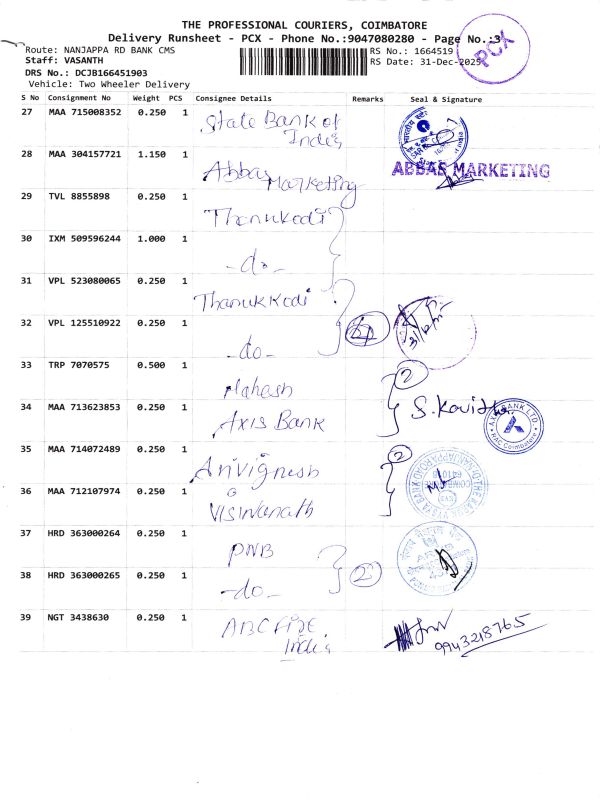 THE PROFESSIONAL COURIERS, COIMBATORE
Delivery Runsheet - PCX - Phone No.:9047080280 - Page No.:3
Route: NANJAPPA RD BANK CMS
RS No.: 1664519
Staff: VASANTH
RS Date: 31-Dec-2025
PCX
DRS No.: DCJB166451903
Vehicle: Two Wheeler Delivery
S No Consignment No Weight PCS Consignee Details Remarks Seal & Signature
27 MAA 715008352 0.250 1 State Bank of
India
28 MAA 304157721 1.150 1 Abbas
Marketing
ABBAS MARKETING
29 TVL 8855898 0.250 1 Thanukodi
30 IXM 509596244 1.000 1 -do-
31 VPL 523080065 0.250 1 Thanukkodi
32 VPL 125510922 0.250 1 -do-
33 TRP 7070575 0.500 1 Mahesh
2
34 MAA 713623853 0.250 1 Axis Bank S. Kavitha
AXIS BANK LTD.
Coimbatore
35 MAA 714072489 0.250 1 Arivignesh
2
36 MAA 712107974 0.250 1 Viswanath
37 HRD 363000264 0.250 1 PNB
38 HRD 363000265 0.250 1 -do- 2
39 NGT 3438630 0.250 1 ABC Fize
India
9943218765